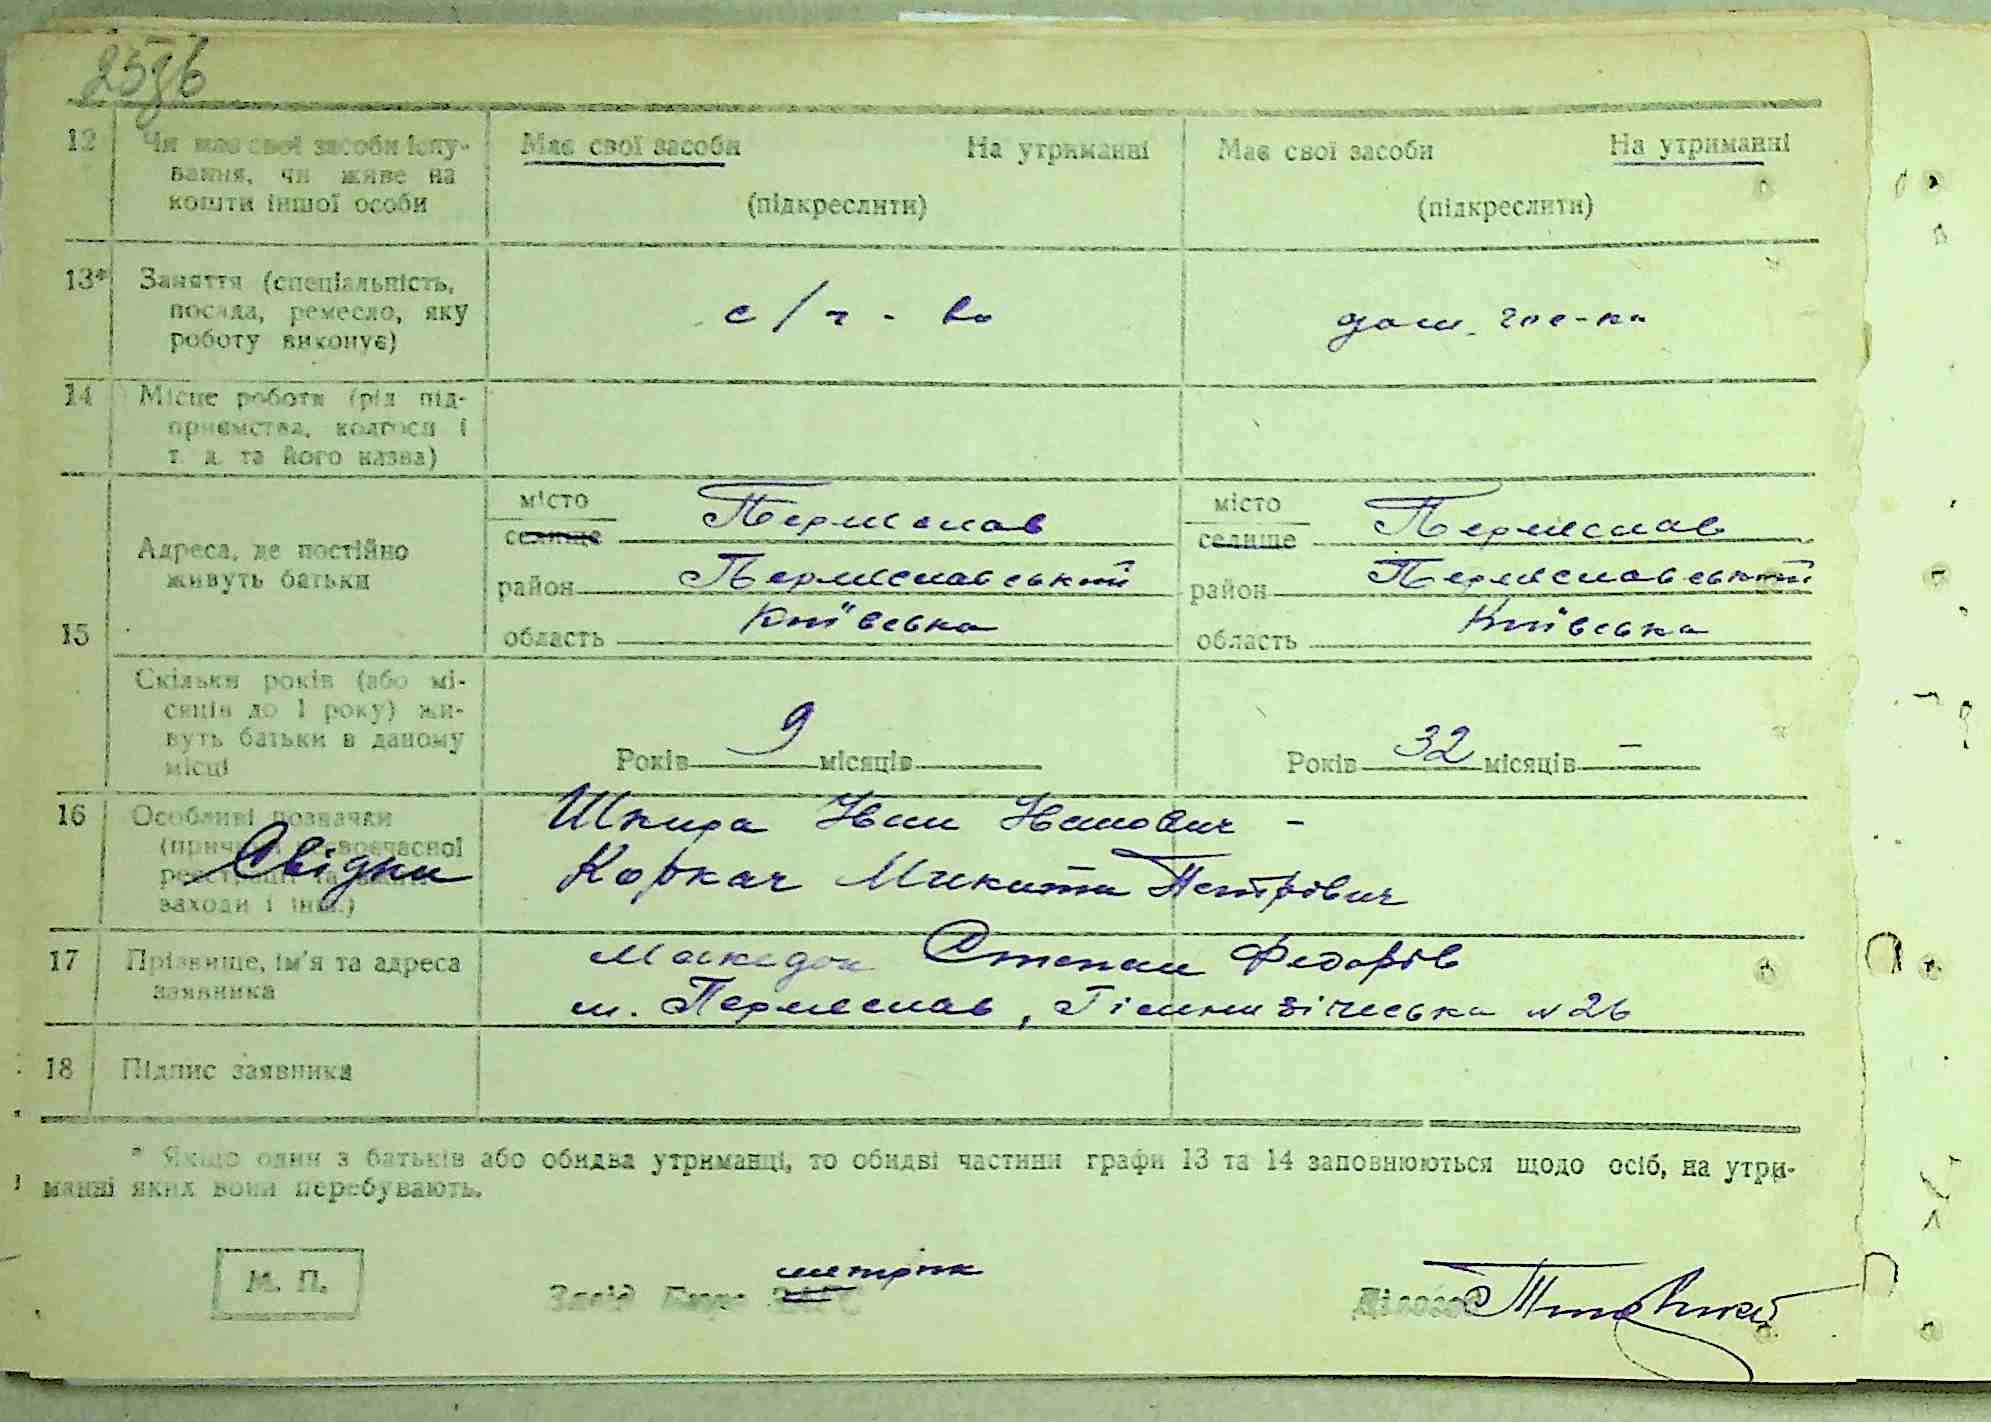 12 Чи має свої засоби існу-
вання, чи живе на
кошти іншої особи
Має свої засоби На утриманні
(підкреслити)
Має свої засоби На утриманні
(підкреслити)
13* Заняття (спеціальність,
посада, ремесло, яку
роботу виконує)
с/г-во
дом. гос-ка
14 Місце роботи (рід під-
приємства, колгосп і
т. д. та його назва)
15 Адреса, де постійно
живуть батьки
місто
селище Переяслав
район Переяславський
область Київська
місто
селище Переяслав
район Переяславський
область Київська
Скільки років (або мі-
сяців до 1 року) жи-
вуть батьки в даному
місці
Років 9 місяців
Років 32 місяців –
16 Особливі позначки
(причини несвоєчасної
реєстрації та вжиті
заходи і інш.)
Свідки
Шкира Іван Іванович –
Коркач Микита Петрович
17 Прізвище, ім'я та адреса
заявника
Македон Степан Федорів
м. Переяслав, № 26
18 Підпис заявника
* Якщо один з батьків або обидва утриманці, то обидві частини графи 13 та 14 заповнюються щодо осіб, на утри-
манні яких вони перебувають.
М. П.
метрик
Завід Бюро ЗАГС
Діловод